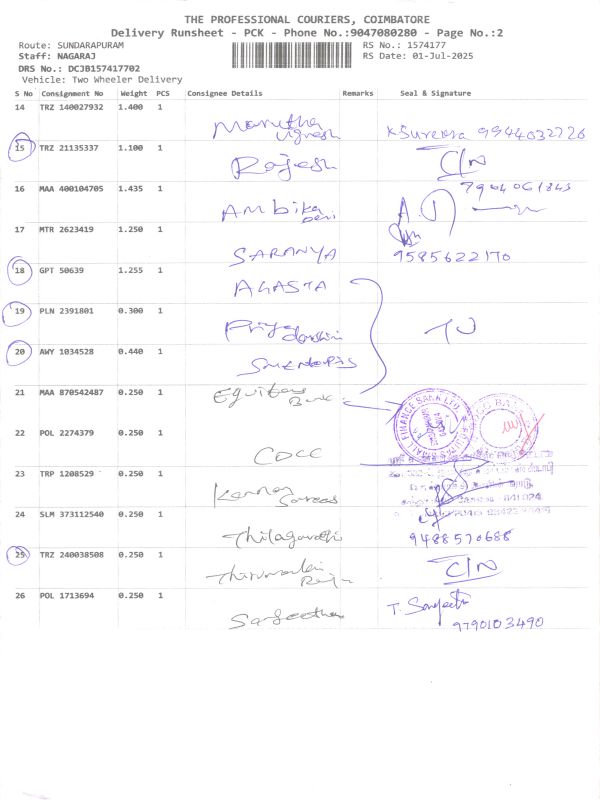 THE PROFESSIONAL COURIERS, COIMBATORE
Delivery Runsheet - PCK - Phone No.:9047080280 - Page No.:2
Route: SUNDARAPURAM RS No.: 1574177
Staff: NAGARAJ RS Date: 01-Jul-2025
DRS No.: DCJB157417702
Vehicle: Two Wheeler Delivery
S No Consignment No Weight PCS Consignee Details Remarks Seal & Signature
14 TRZ 140027932 1.400 1
Marutha
vignesh K Surekha 9944032726
15 TRZ 21135337 1.100 1
Rajesh C/N
16 MAA 400104705 1.435 1 7904061843
Ambika
devi
17 MTR 2623419 1.250 1
SARANYA 9585622170
18 GPT 50639 1.255 1
AGASTA
19 PLN 2391801 0.300 1
Priya
20 AWY 1034528 0.440 1
21 MAA 870542487 0.250 1
Equitas
Bank
22 POL 2274379 0.250 1
CDCC
23 TRP 1208529 0.250 1
Kannan
24 SLM 373112540 0.250 1
Thilagavathi 9488570688
25 TRZ 240038508 0.250 1
C/N
26 POL 1713694 0.250 1
Sageetha T. Sangeetha
9790103490